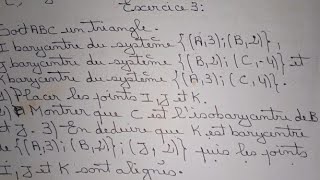 Exercice 3:
Soit ABC un triangle.
I barycentre du système {(A,3);(B,2)},
J barycentre du système {(B,2);(C,-4)} et
K barycentre du système {(A,3);(C,4)}.
1) Placer les points I, J et K.
2) Montrer que C est l'isobarycentre de B
et J. 3)-En déduire que K est barycentre
de {(A,3);(B,2);(J,2)} puis les points
I, J et K sont alignés.